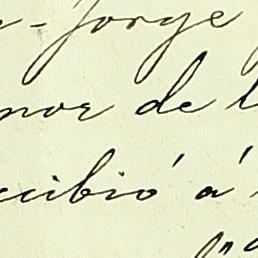 Jorge
nor de l
cibió á